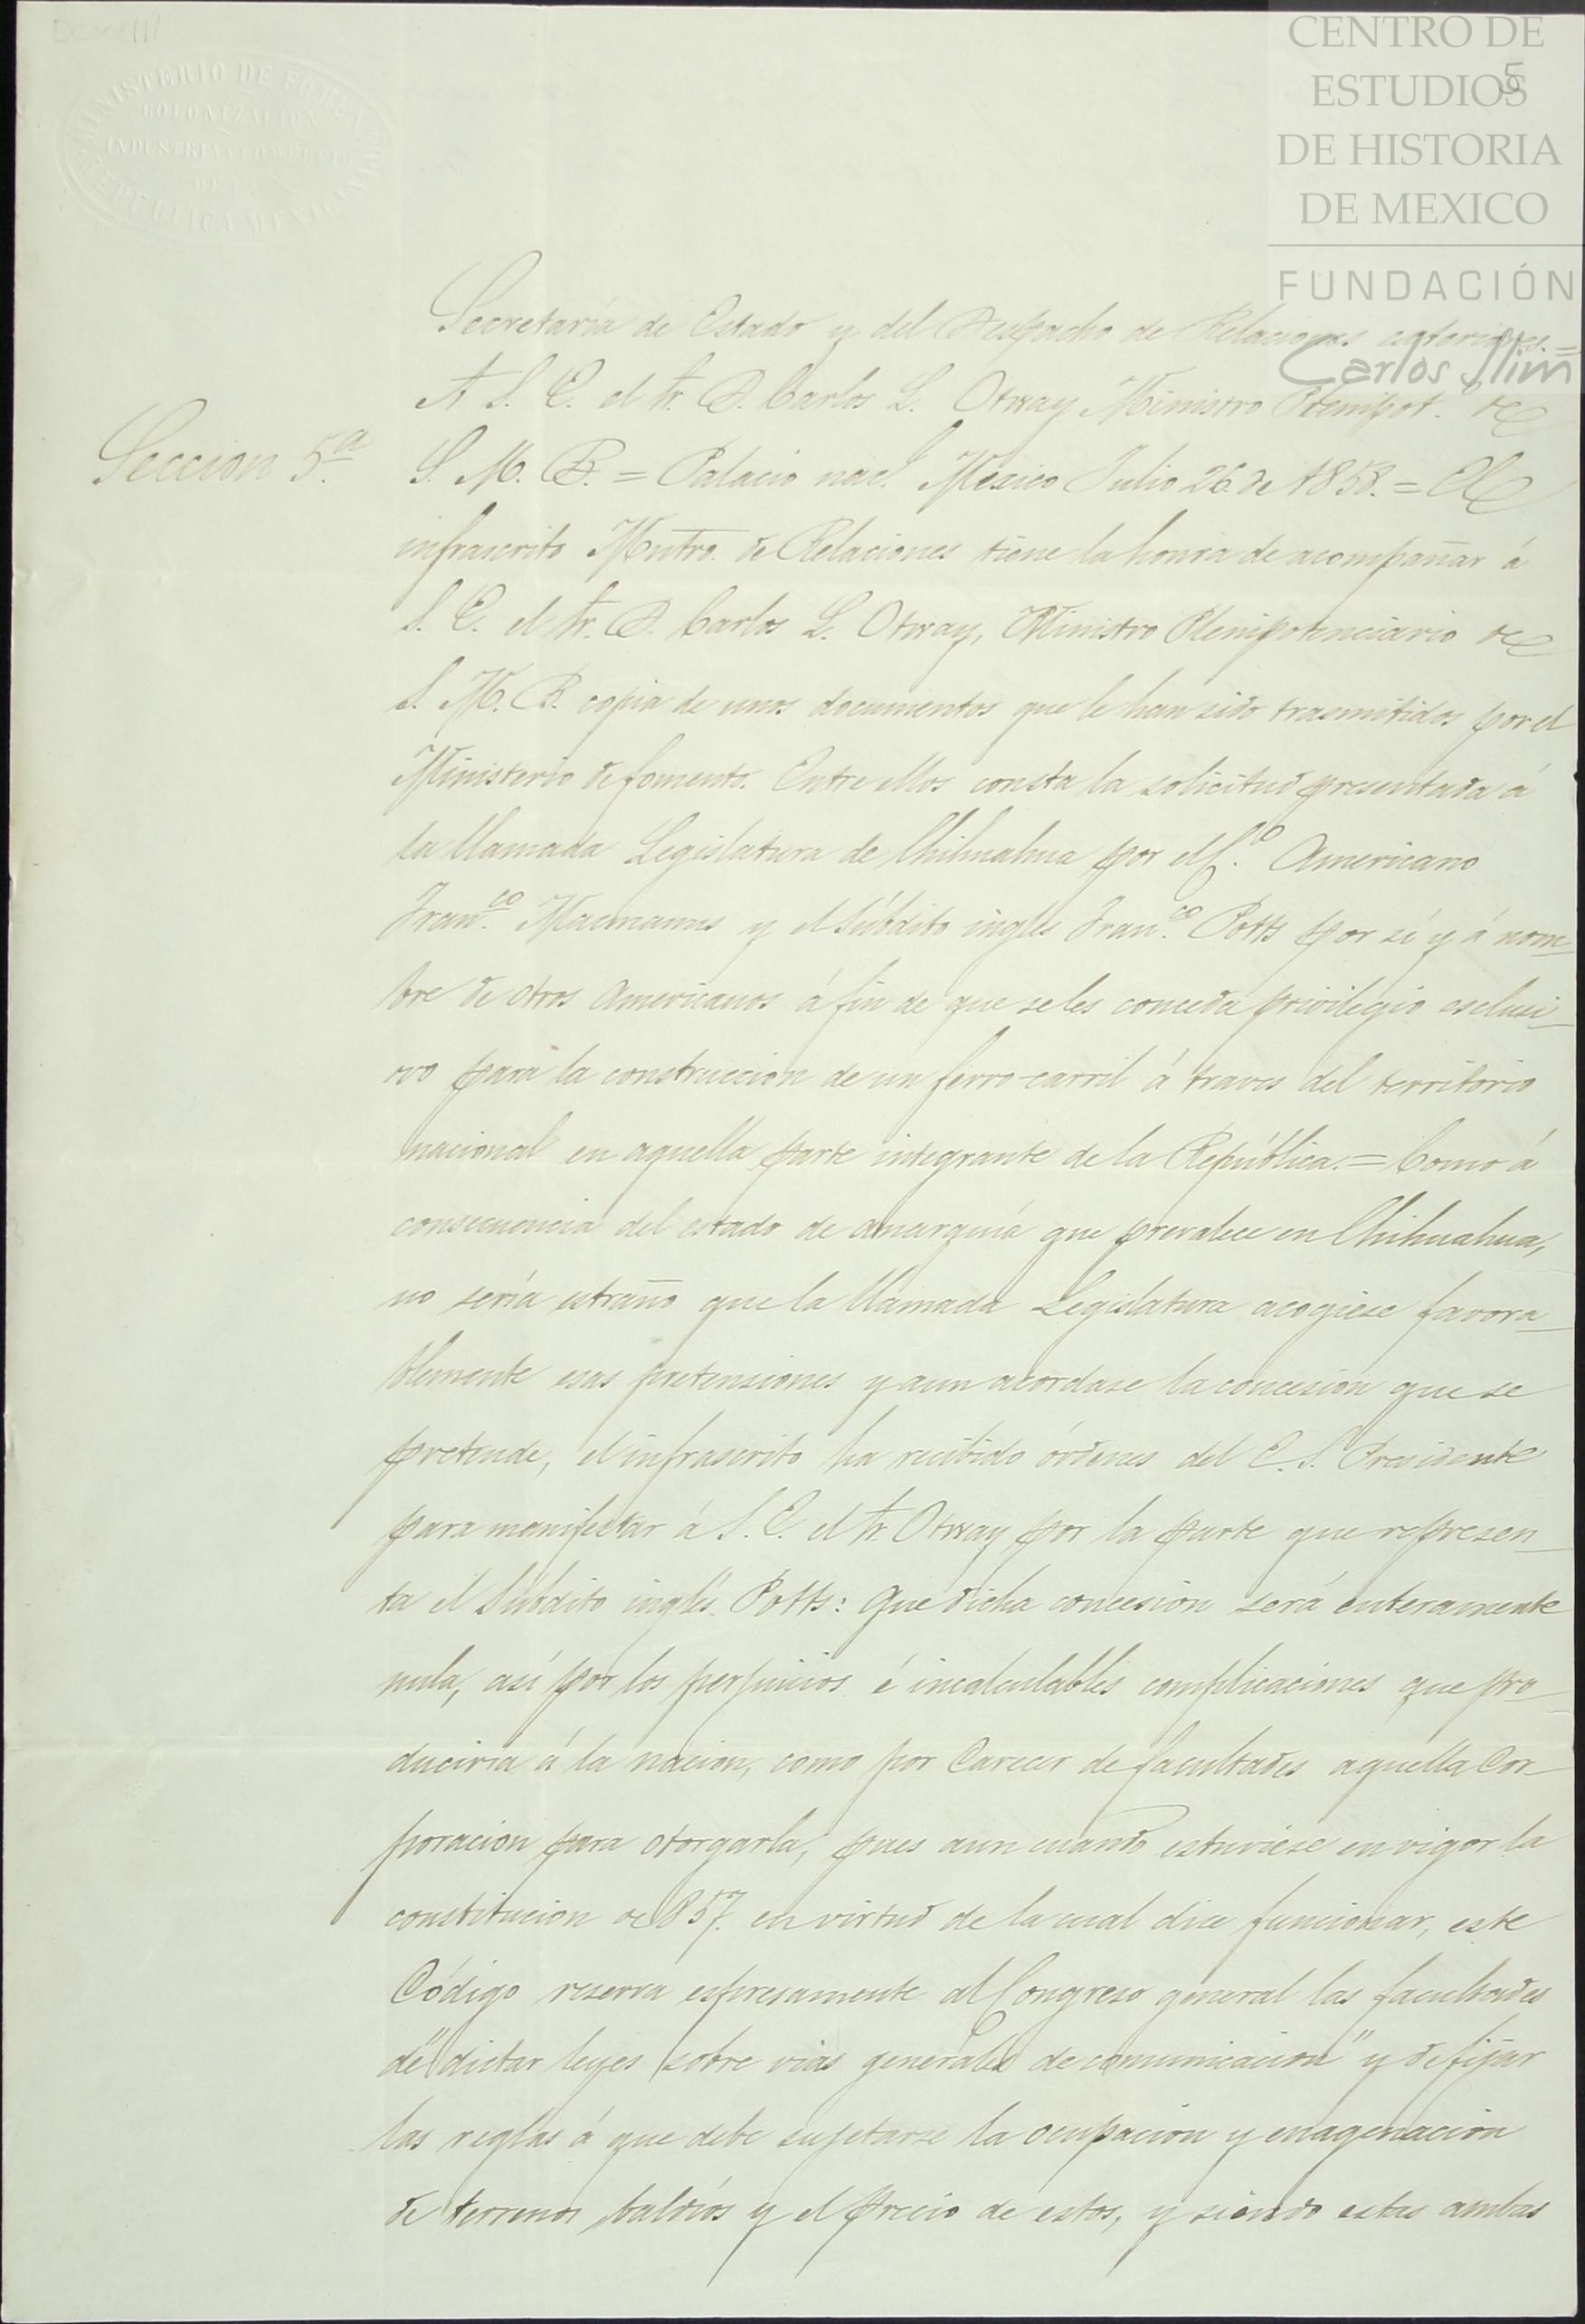 CENTRO DE
ESTUDIOS
DE HISTORIA
DE MEXICO
FUNDACIÓN
Carlos Slim
5
MINISTERIO DE FOMENTO
COLONIZACION
INDUSTRIA Y COMERCIO
DE LA
REPUBLICA MEXICANA
Seccion 5.ª
Secretaría de Estado y del Despacho de Relaciones exteriores.=
A S. E. el Sr. D. Carlos L. Otway Ministro Plenipot.º de
S. M. B. = Palacio nacl. Mexico Julio 26 de 1858. = El
infrascrito Mntro. de Relaciones tiene la honra de acompañar á
S. E. el Sr. D. Carlos L. Otway, Ministro Plenipotenciario de
S. M. B. copia de unos documentos que le han sido trasmitidos por el
Ministerio de fomento. Entre ellos consta la solicitud presentada á
la llamada Legislatura de Chihuahua por el C.º Americano
Fran.co Macmanus y el Súbdito ingles Fran.co Potts por sí y á nom_
bre de otros Americanos á fin de que se les conceda privilegio esclusi_
vo para la construccion de un ferro-carril á traves del territorio
nacional en aquella parte integrante de la República.= Como á
consecuencia del estado de anarquía que prevalece en Chihuahua,
no sería estraño que la llamada Legislatura acogiese favora_
blemente esas pretensiones y aun acordase la concesion que se
pretende, el infrascrito ha recibido órdenes del E. S. Presidente
para manifestar á S. E. el Sr. Otway por la parte que represen_
ta el Súbdito inglés Potts: que dicha concesion será enteramente
nula, así por los perjuicios é incalculables complicaciones que pro_
duciria á la nacion, como por carecer de facultades aquella Cor_
poracion para otorgarla, pues aun cuando estuviese en vigor la
constitucion de 857. en virtud de la cual dice funcionar, este
Código reserva espresamente al Congreso general las facultades
de "dictar leyes sobre vias generales de comunicacion" y de fijar
las reglas á que debe sujetarse la ocupacion y enagenacion
de terrenos baldíos y el precio de estos, y siendo estas ambas